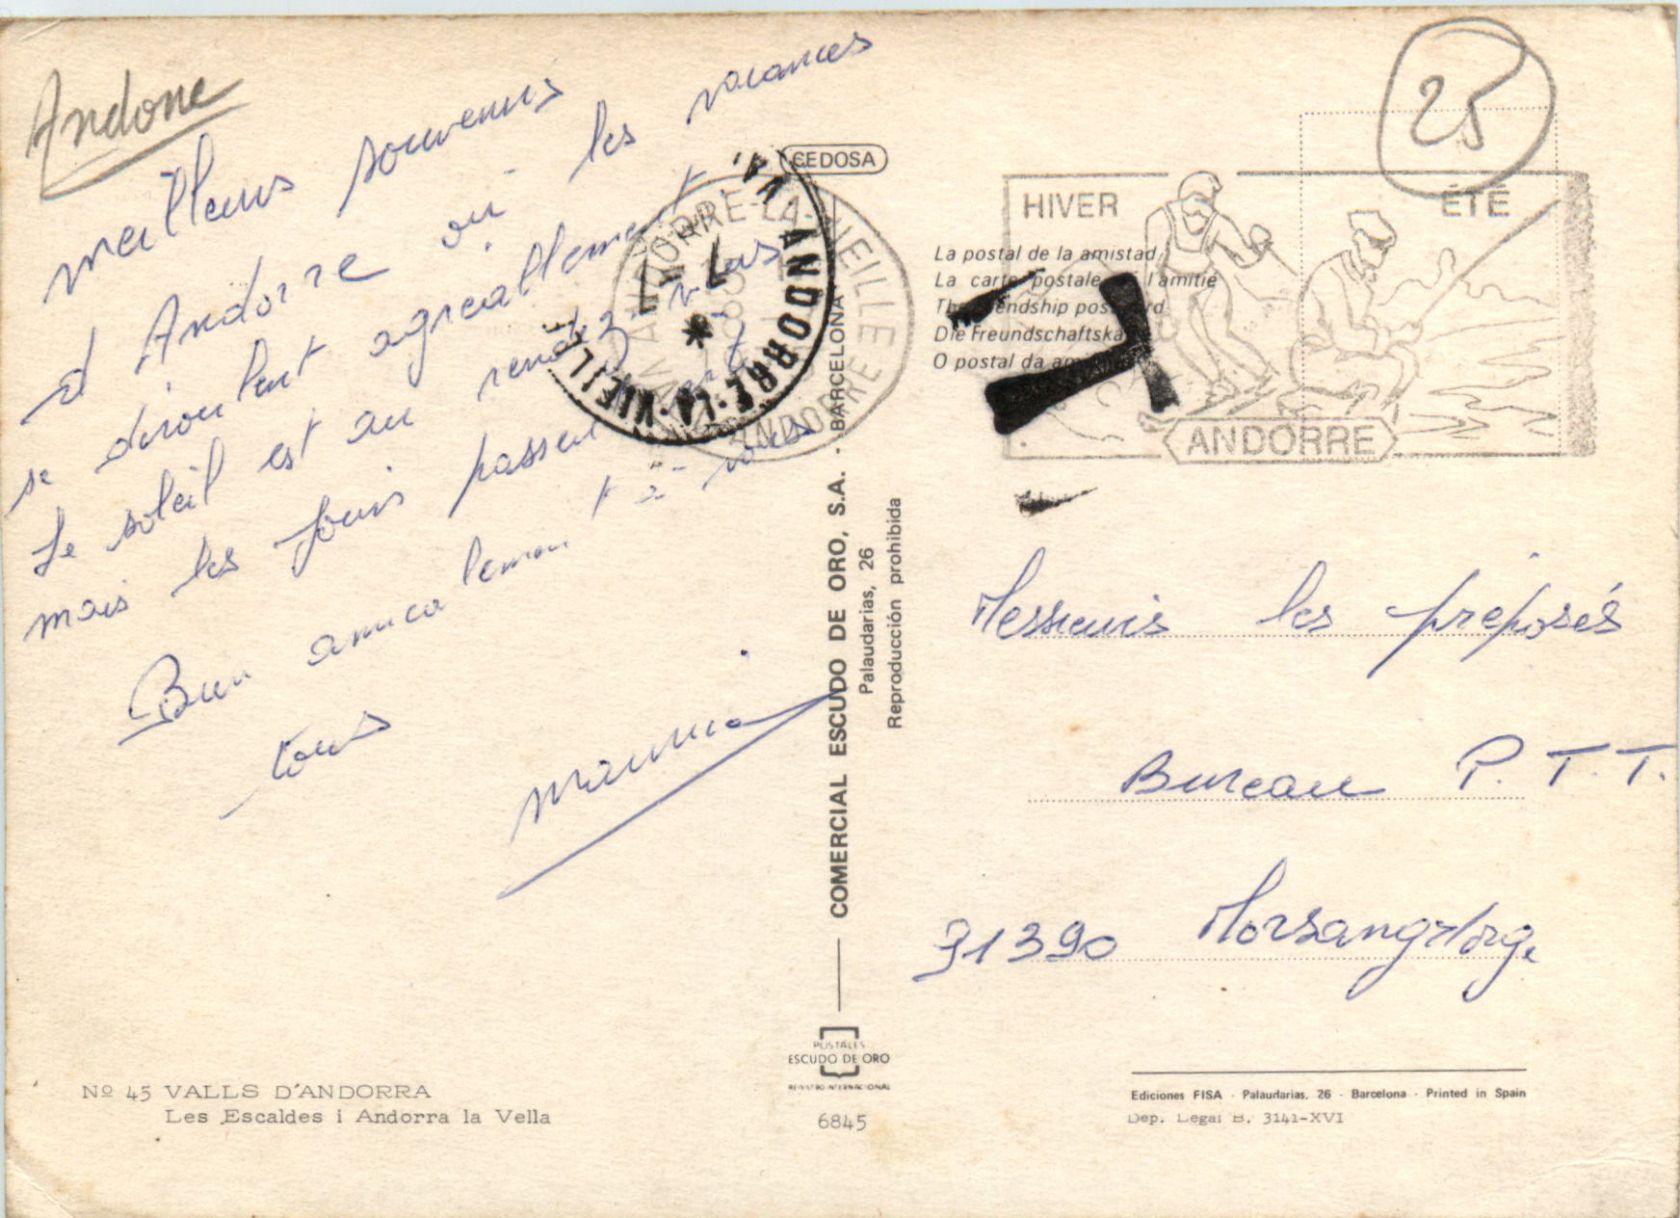 Andorre
meilleurs souvenirs
d'Andorre où les vacances
se déroulent agréablement
Le soleil est au rendez vous
mais les jours passent
Bien amicalement à vous
tous
Maurice
CEDOSA
ANDORRE-LA-VIEILLE
ANDORRE
ANDORRE-LA-VIEILLE
COMERCIAL ESCUDO DE ORO, S.A. - BARCELONA
Palaudarias, 26
Reproducción prohibida
POSTALES
ESCUDO DE ORO
REGISTRO INTERNACIONAL
6845
25
HIVER
ÉTÉ
ANDORRE
La postal de la amistad
La carte postale l'amitie
The friendship postcard
Die Freundschaftska
O postal da am
T
Messieurs les préposés
Bureau P.T.T.
91390 Morsang s/Orge
Nº 45 VALLS D'ANDORRA
Les Escaldes i Andorra la Vella
Ediciones FISA - Palaudarias, 26 - Barcelona - Printed in Spain
Dep. Legal B. 3141-XVI